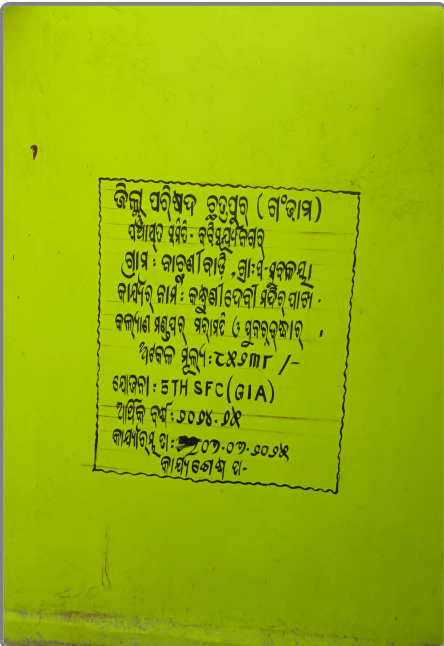 ଜିଲ୍ଲା ପରିଷଦ ଛତ୍ରପୁର (ଗଂଜାମ)
ପଞ୍ଚାୟତ ସମିତି - କବିସୂର୍ଯ୍ୟନଗର
ଗ୍ରାମ : କାଚୁଣୀବାଡ଼ି , ଗ୍ରା:ପ-ସୁବଳୟା
କାର୍ଯ୍ୟର ନାମ : କନ୍ଧୁଣୀଦେବୀ ମନ୍ଦିର ପାଖ
କଲ୍ୟାଣ ମଣ୍ଡପର ମରାମତି ଓ ପୁନରୁଦ୍ଧାର
ଅଟକଳ ମୂଲ୍ୟ : ୮୫୬୩୮ /-
ଯୋଜନା : 5TH SFC (GIA)
ଆର୍ଥିକ ବର୍ଷ : ୨୦୨୪-୨୫
କାର୍ଯ୍ୟାରମ୍ଭ ତା : ୦୩-୦୩-୨୦୨୫
କାର୍ଯ୍ୟଶେଷ ତା-